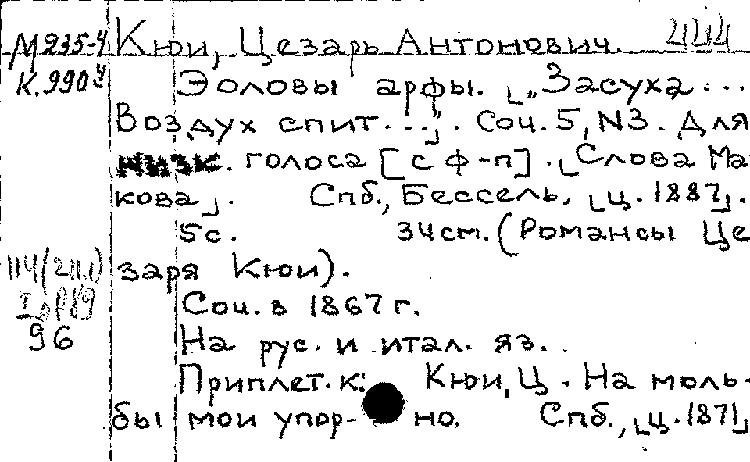 М 235-4 Кюи, Цезарь Антонович.
К.990 Эоловы арфы. ⌊„Засуха, ...
Воздух спит...“⌋. Соч. 5, N3. Для
низк. голоса [с ф-п]. ⌊Слова Ма
кова⌋. Спб., Бессель, ⌊ц. 1887⌋.
5с. 34см. (Романсы Це
заря Кюи).
Соч. в 1867 г.
96
На рус. и итал. яз.
Приплет. к: Кюи, Ц. На моль-
бы мои упор- но. Спб., ⌊ц. 1871⌋